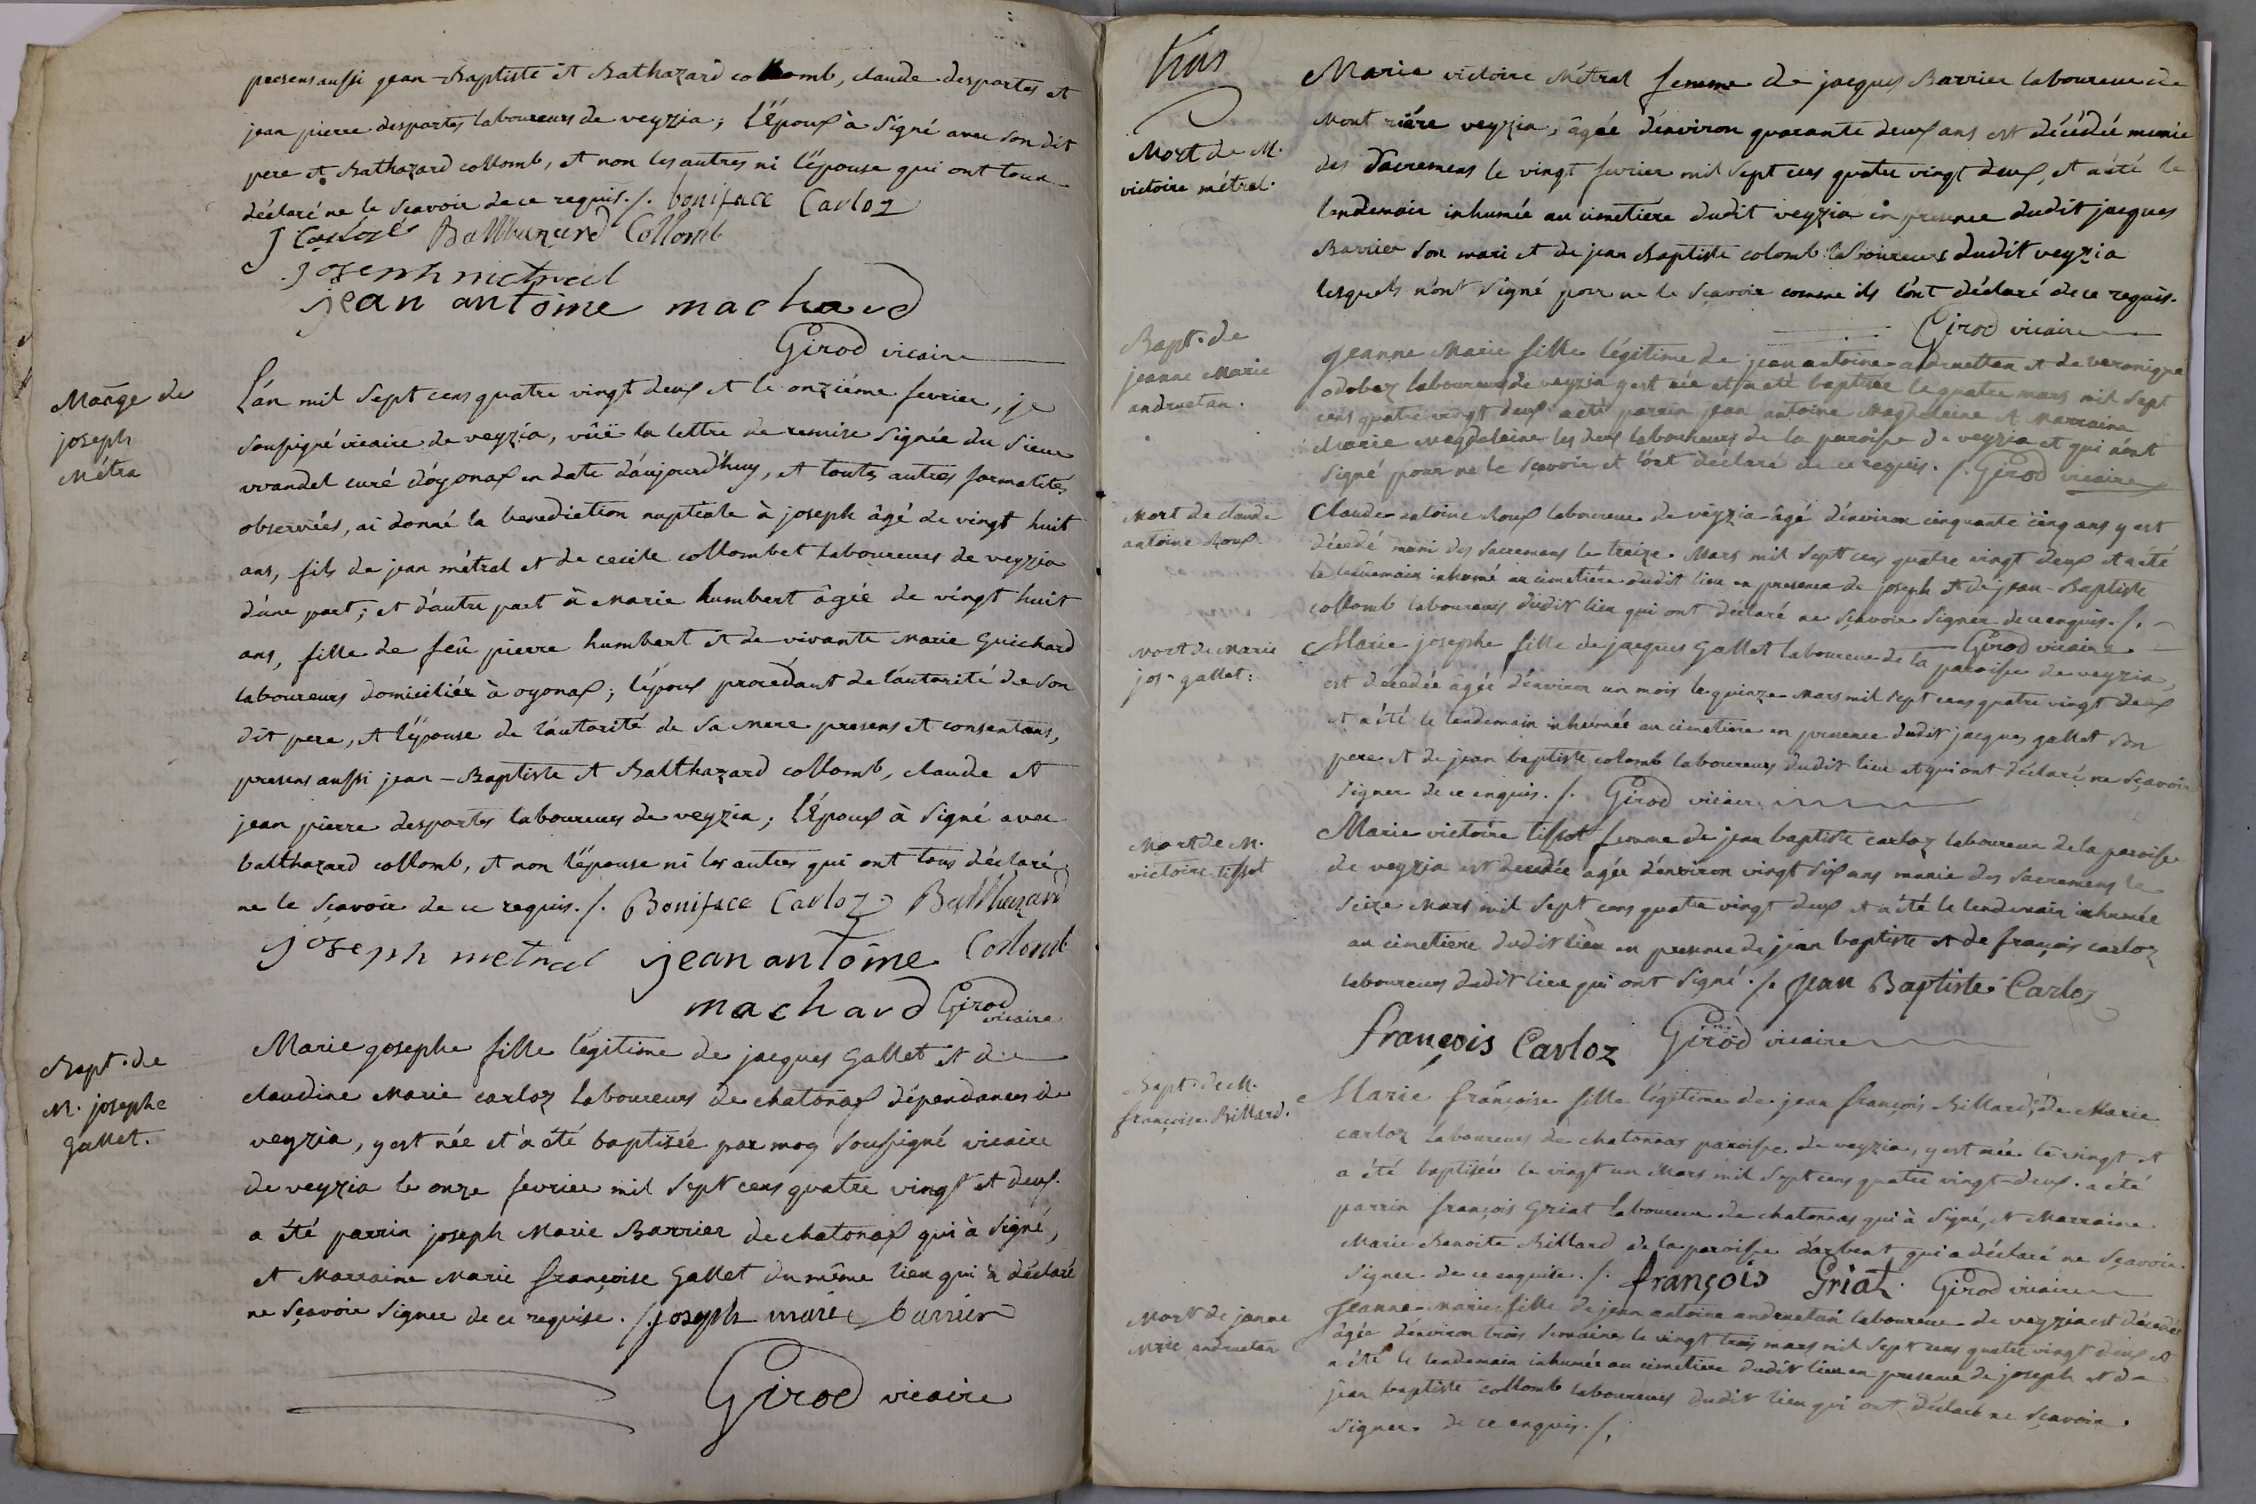 presens aussi jean-Baptiste et Balthazard collomb, claude desportes et
jean pierre desportes laboureurs de veyzia; l'Epoux à Signé avec son dit
pere et Balthazard collomb, et non les autres ni l'épouse qui ont tous
déclaré ne le scavoir de ce requis./. boniface Carloz
J Carloz Balthazard Collomb
joseph metral
jean antoine machard
Girod vicaire
Mãage de
joseph
Métra
L'an mil Sept cens quatre vingt deux et le onziéme fevrier, je
Soussigné vicaire de veyzia, vûë la lettre de remise signée du Sieur
vvandel curé d'oyonax en date d'aujourd'huy, et toutes autres formalités
observées, ai donné la benediction nuptiale à joseph âgé de vingt huit
ans, fils de jean métral et de cecile collombet laboureurs de veyzia
d'une part; et d'autre part à Marie humbert âgée de vingt huit
ans, fille de feû pierre humbert et de vivante Marie Guichard
laboureurs domiciliés à oyonax; l'époux procédant de l'autorité de son
dit pere, et l'épouse de l'autorité de sa mere presens et consentans,
presens aussi jean-Baptiste et Balthazard collomb, claude et
jean pierre desportes laboureurs de veyzia; l'Epoux à Signé avec
balthazard collomb, et non l'épouse ni les autres qui ont tous déclaré
ne le scavoir de ce requis./. Boniface Carloz Balthazard
joseph metral jean antoine Collomb
machard Girod
vicaire
Bapt. de
M. josephe
Gallet.
Marie josephe fille légitime de jacques Gallet et de
claudine Marie carloz laboureurs de chatonax dépendances de
veyzia, y est née et à été baptisée par moy soussigné vicaire
de veyzia le onze fevrier mil Sept cens quatre vingt et deux.
a été parrin joseph Marie Barrier de chatonax qui à signé,
et Marraine Marie françoise Gallet du même lieu qui à déclaré
ne sçavoir signer de ce requise. /. joseph marie barrier
Girod vicaire
trois
Mort de M.
victoire métral.
Marie victoire Métral femme de jacques Barrier laboureur de
Mont riére veyzia, âgée d'environ quarante deux ans est décédée munie
des Sacremens le vingt fevrier mil Sept cens quatre vingt deux, et a été le
lendemain inhumée au cimetiére dudit veyzia en presence dudit jacques
Barrier son mari et de jean Baptiste colomb laboureurs dudit veyzia
lesquels n'ont signé pour ne le sçavoir comme ils l'ont déclaré de ce requis.
Girod vicaire
Bapt. de
jeanne Marie
andruetan.
jeanne Marie fille légitime de jean antoine andruettan et de veronique
odobez laboureurs de veyzia y est née et a été baptisée le quatre mars mil Sept
cens quatre vingt deux. a été parrin jean antoine Magdelaine et Marraine
Marie Magdelaine les deux laboureurs de la paroisse de veyzia et qui n'ont
signé pour ne le sçavoir et l'ont déclaré de ce requis. /. Girod vicaire
Mort de claude
antoine Roux.
Claude antoine Roux laboureur de veyzia âgé d'environ cinquante cinq ans y est
décedé muni des sacremens le treize Mars mil sept cens quatre vingt deux et a été
le lendemain inhumé au cimetiére dudit lieu en presence de joseph et de jean-Baptiste
collomb laboureurs dudit lieu qui ont déclaré ne sçavoir signer de ce enquis. /.
Girod vicaire
Mort de Marie
jos. gallet:
Marie josephe fille de jacques Gallet laboureur de la paroisse de veyzia,
est décédée âgée d'environ un mois le quinze Mars mil Sept cens quatre vingt deux
et a été le lendemain inhumée au cimetiere en presence dudit jacques gallet son
pere et de jean baptiste colomb laboureurs dudit lieu et qui ont déclaré ne sçavoir
signer de ce enquis. /. Girod vicaire
Mort de M.
victoire tissot
Marie victoire tissot femme de jean baptiste carloz laboureur de la paroisse
de veyzia est decedée agée d'environ vingt six ans munie des sacremens le
Seize Mars mil Sept cens quatre vingt deux et a été le lendemain inhumée
au cimetiere dudit lieu en presence de jean baptiste et de françois carloz
laboureurs dudit lieu qui ont signé. /. jean Baptiste Carloz
françois Carloz Girod vicaire
Bapt. de M.
françoise Billard.
Marie françoise fille légitime de jean françois Billard, et de Marie
carloz laboureurs de chatonnax paroisse de veyzia, y est née le vingt et
a été baptisée le vingt un Mars mil Sept cens quatre vingt-deux. a été
parrin françois Griat laboureur de chatonnas qui à signé, et Marraine
Marie Benoite Billard de la paroisse d'arbent qui a déclaré ne sçavoir
signer de ce enquise. /. françois Griat. Girod vicaire
Mort de janne
Mrie andruetan
Jeanne-marie fille de jean antoine andruetan laboureur de veyzia est décedée
âgée d'environ trois semaines le vingt trois mars mil Sept cens quatre vingt deux et
a été le lendemain inhumée au cimetiere dudit lieu en presence de joseph et de
jean baptiste collomb laboureurs dudit lieu qui ont déclaré ne sçavoir
signer de ce enquis. /.